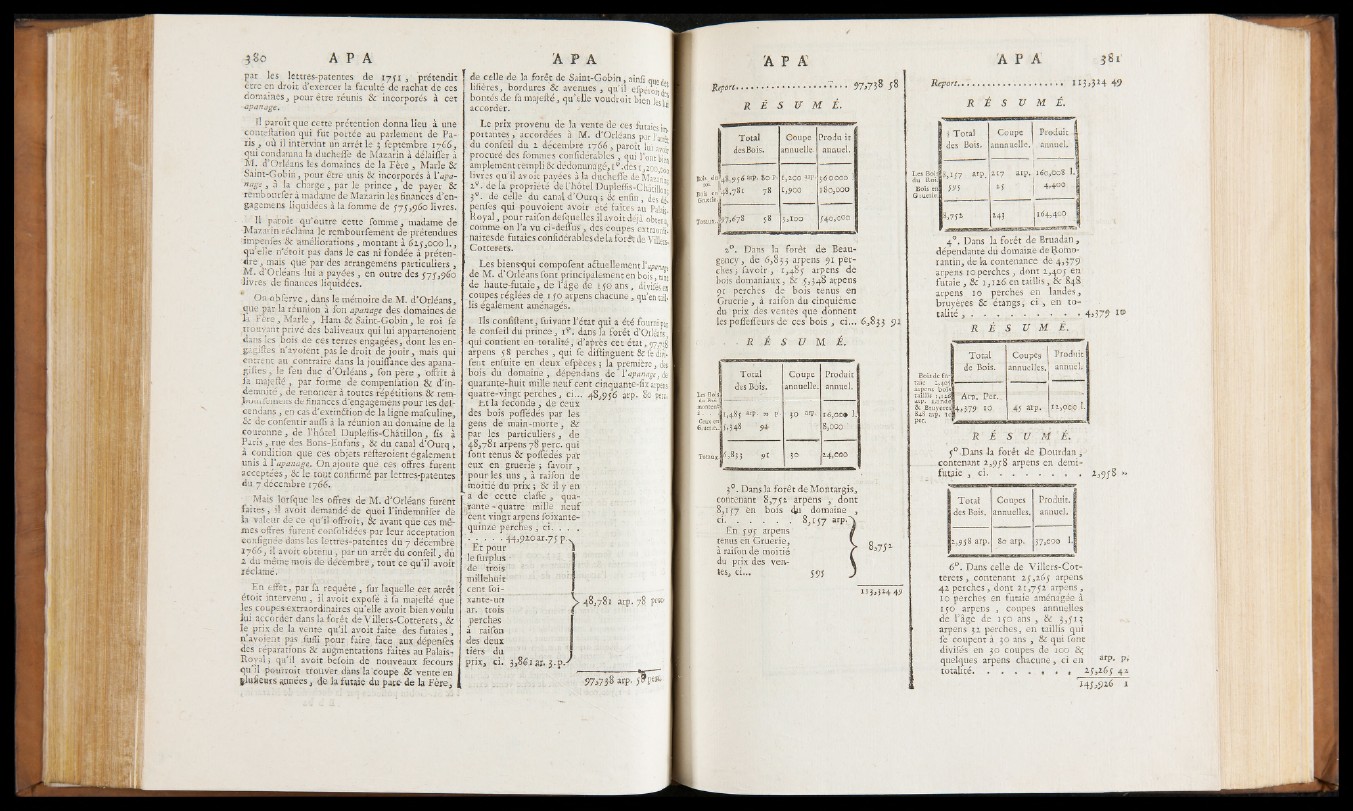 380 A P A
par les lettres-patentes de 1751, prétendit
être en droit d'exercer la faculté de rachat de ces
domaines, pour être réunis & incorporés à cet
apanage.
Il paroît que cette prétention donna lieu à une
contestation qui fut portée au parlement de Pa-
ris, où il intervint un arrêt le 3 septembre 1766,
qui condamna la duchesse de Mazarin à délaisser à
M. d'Orléans les domaines de la Fère, Marle &
Saint-Gobin, pour être unis & incorporés à l'apa-
nage, à la charge, par le prince, de payer &
rembourser à madame de Mazarin les finances d'en-
gagemens liquidées à la somme de 575,960 livres.
Il paroît qu'outre cette somme, madame de
Mazarin réclama le remboursement de prétendues
impenses & améliorations, montant à 625,000 l.,
qu'elle n'étoit pas dans le cas ni fondée à préten-
dre, mais que par des arrangemens particuliers,
M. d'Orléans lui a payées, en outre des 575,960
livres de finances liquidées.
On observe, dans le mémoire de M. d'Orléans,
que par la réunion à son apanage des domaines de
la Fère, Marle, Ham & Saint-Gobin, le roi se
trouvant privé des baliveaux qui lui appartenoient
dans les bois de ces terres engagées, dont les en-
gagistes n'avoient pas le droit de jouir, mais qui
entrent au contraire dans la jouissance des apana-
gistes, le feu duc d'Orléans, son père, offrit à
sa majesté, par forme de compensation & d'in-
demnité, de renoncer à toutes répétitions & rem-
boursemens de finances d'engagemens pour les des-
cendans, en cas d'extinction de la ligne masculine,
& de consentir aussi à la réunion au domaine de la
couronne, de l'hôtel Duplessis-Châtillon, sis à
Paris, rue des Bons-Enfans, & du canal d'Ourq,
à condition que ces objets resteroient également
unis à l'apanage. On ajoute que ces offres furent
acceptées, & le tout confirmé par lettres-patentes
du 7 décembre 1766.
Mais lorsque les offres de M. d'Orléans furent
faites, il avoit demandé de quoi l'indemniser de
la valeur de ce qu'il offroit, & avant que ces mê-
mes offres furent consolidées par leur acceptation
consignée dans les lettres-patentes du 7 décembre
1766, il avoit obtenu, par un arrêt du conseil, du
2 du même mois de décembre, tout ce qu'il avoit
réclamé.
En effet, par sa requête, sur laquelle cet arrêt
étoit intervenu, il avoit exposé à sa majesté que
les coupes extraordinaires qu'elle avoit bien voulu
lui accorder dans la forêt de Villers-Cotterets, &
le prix de la vente qu'il avoit faite des futaies,
n'avoient pas suffi pour faire face aux dépenses
des réparations & augmentations faites au Palais-
Royal; qu'il avoit besoin de nouveaux secours
qu'il pourroit trouver dans la coupe & vente en
plusieurs années, de la futaie du parc de la Fère,
A P A
de celle de la forêt de Saint-Gobin, ainsi que des
lisières, bordures & avenues, qu'il espéroit des
bontés de sa majesté, qu'elle voudroit bien les lui
accorder.
Le prix provenu de la vente de ces futaies im-
portantes, accordées à M. d'Orléans par l'arrêt
du conseil du 2 décembre 1766, paroît lui avoir
procuré des sommes considérables, qui l'ont bien
amplement rempli & dédommagé, 1°. des 1,200,000
livres qu'il avoit payées à la duchesse de Mazarin,
2°. de la propriété de l'hôtel Duplessis-Châtillon,
3°. de celle du canal d'Ourq; & enfin, des dé-
penses qui pouvoient avoir été faites au Palais-
Royal, pour raison desquelles il avoit déjà obtenu,
comme on l'a vu ci-dessus, des coupes extraordi-
naires de futaies considérables de la forêt de Villers-
Cotterets.
Les biens qui composent actuellement l'apanage
de M. d'Orléans sont principalement en bois, tant
de haute-futaie, de l'âge de 150 ans, divisés en
coupes réglées de 150 arpens chacune, qu'en tail-
lis également aménagés.
Ils consistent, suivant l'état qui a été fourni par
le conseil du prince, 1°. dans la forêt d'Orléans,
qui contient en totalité, d'après cet état, 97,738
arpens 58 perches, qui se distinguent & se divi-
sent ensuite en deux espèces; la première, des
bois du domaine, dépendans de l'apanage, de
quarante-huit mille neuf cent cinquante-six arpens
quatre-vingt perches, ci... 48,956 arp. 80 perc.
Et la seconde, de ceux
des bois possédés par les
gens de main-morte, &
par les particuliers, de
48,781 arpens 78 perc. qui
sont tenus & possédés par
eux en gruerie; savoir,
pour les uns, à raison de
moitié du prix; & il y en
a de cette classe, qua-
rante-quatre mille neuf
cent vingt arpens soixante-
quinze perches, ci. . . .
. . . . . 44,920 ar. 75 p.
Et pour
le surplus
de trois
mille huit
cent soi-
xante-un
ar. trois
perches
à raison
des deux
tiers du
prix, ci. 3,861 ar. 3. p.
48,781 arp. 78 perc.
97,738 arp. 58 perc.
A P A
Report. . . . . . . . . . 97,738 58
R É S U M É.
Total des Bois. Coupe annuelle Produit annuel.
48,956 arp. 80 p. 1,200 arp. 360000
Bois en Gruerie. 48,781 78 1,900 180,000
Totaux. 97,678 58 3,100 540,000
2°. Dans la forêt de Beau-
gency, de 6,833 arpens 91 per-
ches; savoir, 1,485 arpens de
bois domaniaux, & 5,348 arpens
91 perches de bois tenus en
Gruerie, à raison du cinquième
du prix des ventes que donnent
les possesseurs de ces bois, ci... 6,833 92
R É S U M É.
Total des Bois. Coupe annuelle. Produit annuel.
1,485 arp. » p 30 arp. 16,000 l.
5,348 92 8,000
Totaux 6,833 91 30 24,000
3°. Dans la forêt de Montargis,
contenant 8,752 arpens, dont
8,157 en bois du domaine,
ci. . . . . . 8,157 arp.
En 595 arpens
tenus en Gruerie,
à raison de moitié
du prix des ven-
tes, ci... 595
8,752
113,324 49
A P A 381
Report. . . . . . . . . . 113,324 49
R É S U M É.
Total des Bois. Coupe annuelle. Produit annuel.
Les Bois du Roi. 8,157 arp. 217 arp. 160,008 l.
Bois en Gruerie. 595 25 4,400
8,752 243 164,400
4°. Dans la forêt de Bruadan,
dépendante du domaine de Romo-
rantin, de la contenance de 4,379
arpens 10 perches, dont 2,405 en
futaie, & 1,126 en taillis, & 848
arpens 10 perches en landes,
bruyères & étangs, ci, en to-
talité, . . . . . . . . . 4,379 10
R É S U M É.
Total de Bois. Coupes annuelles. Produit annuel.
Arp. Per.
4,379 10 45 arp. 12,000 l.
R É S U M É.
5°. Dans la forêt de Dourdan,
contenant 2,958 arpens en demi-
futaie, ci. . . . . . . . 2,958 »
Total des Bois. Coupes annuelles. Produit. annuel.
2,958 arp. 80 arp. 37,000 l.
6°. Dans celle de Villers-Cot-
terets, contenant 25,265 arpens
42 perches, dont 21,752 arpens,
10 perches en futaie aménagée à
150 arpens, coupes annuelles
de l'âge de 150 ans, & 3,513
arpens 32 perches, en taillis qui
se coupent à 30 ans, & qui sont
divisés en 30 coupes de 100 &
quelques arpens chacune, ci en arp. p.
totalité. . . . . . . . 25,265 42
145,926 1